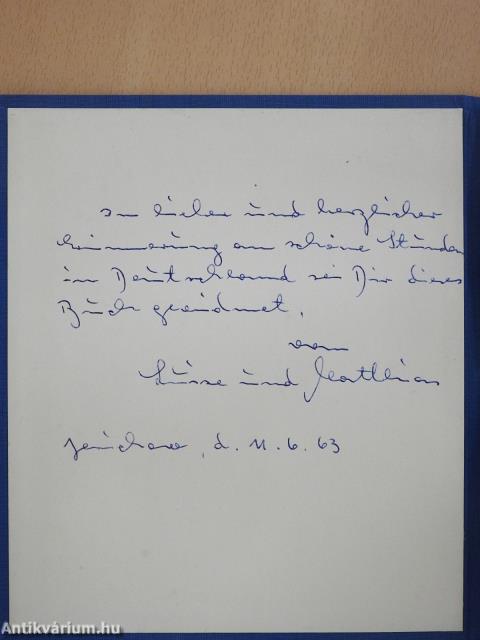 In lieber und herzlicher
Erinnerung an schöne Stunden
in Deutschland sei Dir dieses
Buch gewidmet.
von
und Matthias
Jerichow, d. 11.6.63
Antikvárium.hu